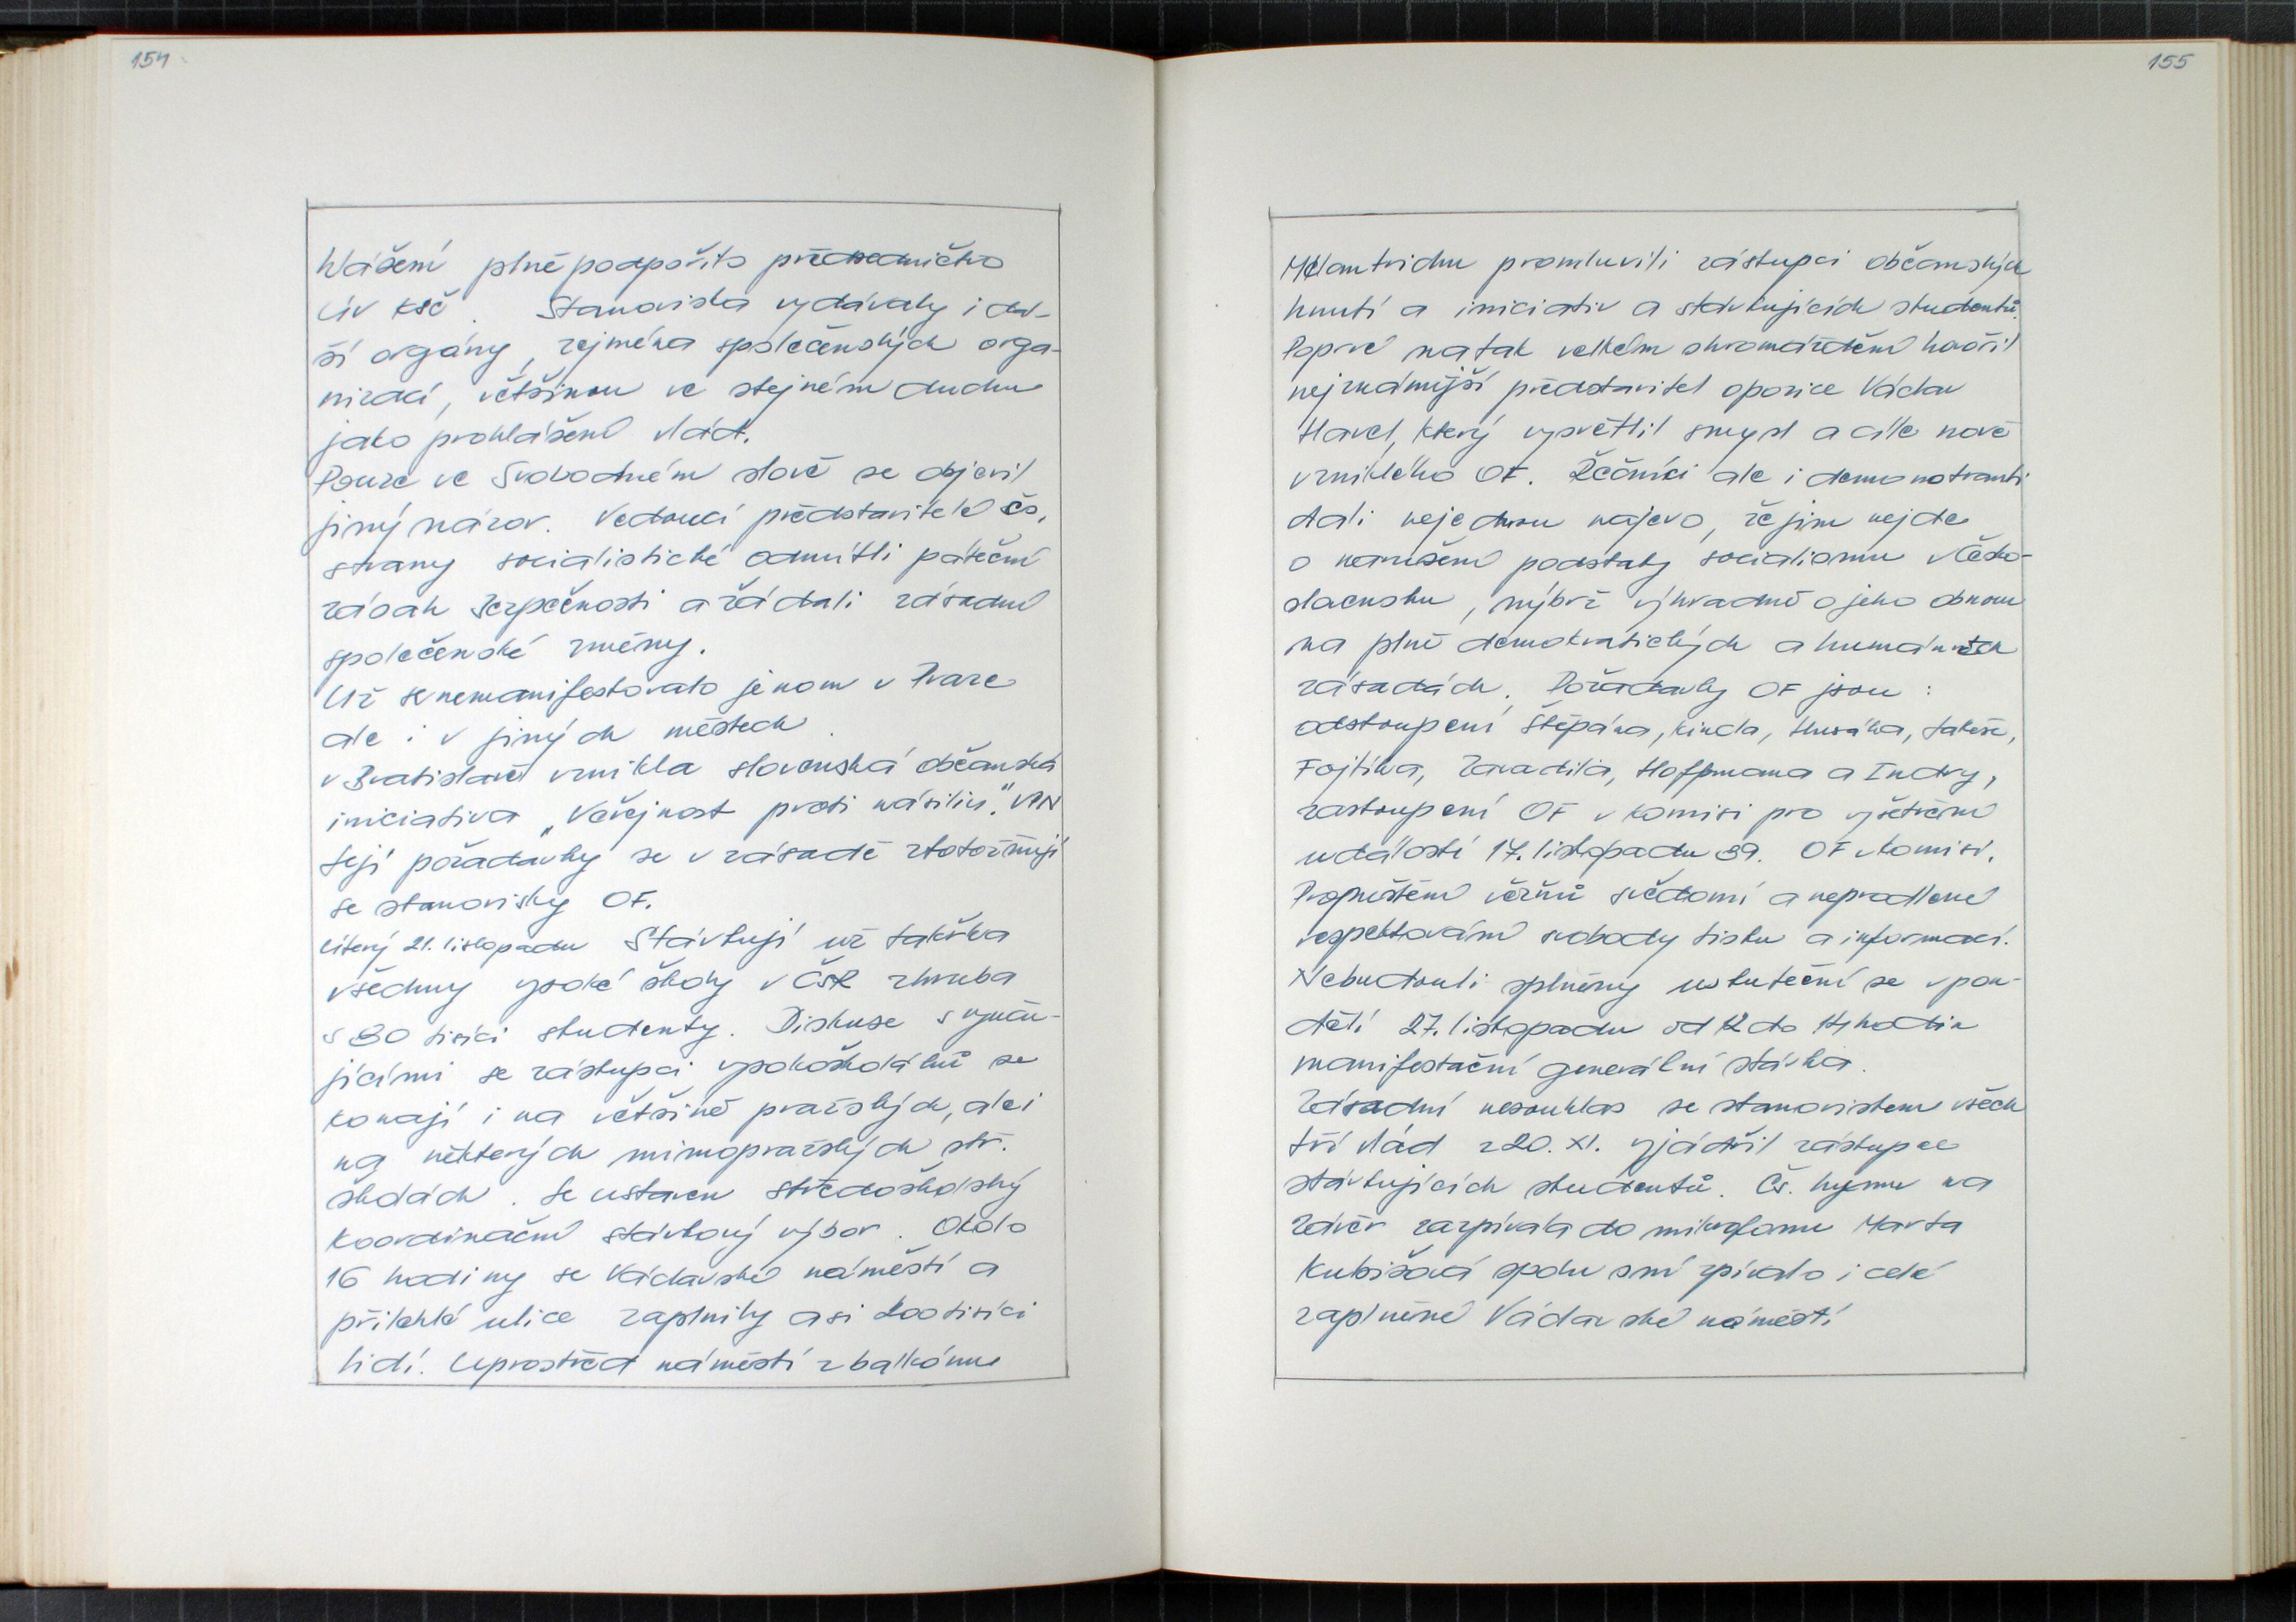 154
hlášení plně podpořilo předsednictvo
ÚV KSČ. Stanoviska vydávaly i dal-
ší orgány, zejména společenských orga-
nizací, většinou ve stejném duchu
jako prohlášení vlád.
Pouze ve Svobodném slově se objevil
jiný názor. Vedoucí představitelé čs.
strany socialistické odmítli páteční
zásah bezpečnosti a žádali zásadní
společenské změny.
Už se nemanifestovalo jenom v Praze
ale i v jiných městech.
v Bratislavě vznikla slovenská občanská
iniciativa „Veřejnost proti násiliu." VPN
Její požadavky se v zásadě ztotožňují
se stanovisky OF.
Úterý 21. listopadu Stávkují už takřka
všechny vysoké školy v ČSR zhruba
s 80 tisíci studenty. Diskuse s vyuču-
jícími se zástupci vysokoškoláků se
konají i na většině pražských, ale i
na některých mimopražských stř.
školách. Je ustaven středoškolský
koordinační stávkový výbor. Okolo
16 hodiny se Václavské náměstí a
přilehlé ulice zaplnily asi 200 tisíci
lidí. Uprostřed náměstí z balkónu
155
Melantrichu promluvili zástupci občanských
hnutí a iniciativ a stávkujících studentů.
Poprvé na tak velkém shromáždění hovořil
nejznámější představitel opozice Václav
Havel, který vysvětlil smysl a cíle nově
vzniklého OF. Řečníci ale i demonstranti
dali nejednou najevo, že jim nejde
o narušení podstaty socialismu v Česko-
slovensku, nýbrž výhradně o jeho obnovu
na plně demokratických a humánních
zásadách. Požadavky OF jsou:
odstoupení Štěpána, Kincla, Husáka, Jakeše,
Fojtíka, Zavadila, Hoffmana a Indry,
zastoupení OF v komisi pro vyšetření
událostí 17. listopadu 89. OF v komisi.
Propuštění vězňů svědomí a neprodlené
respektování svobody tisku a informací.
Nebudou li splněny uskuteční se v pon-
dělí 27. listopadu od 12 do 14 hodin
manifestační generální stávka.
Zásadní nesouhlas se stanoviskem všech
tří vlád z 20. XI. vyjádřil zástupce
stávkujících studentů. Čs. hymnu na
závěr zazpívala do mikrofonu Marta
Kubišová spolu s ní zpívalo i celé
zaplněné Václavské náměstí